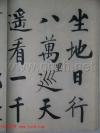 坐地日行
八萬里巡天
遥看一千